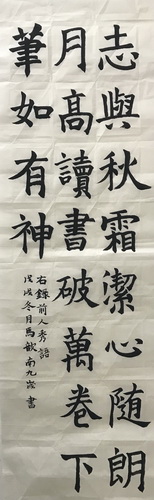 志與秋霜潔心随朗
月高讀書破萬卷下
筆如有神
右錄前人秀語
戊戌冬月馬 南九 書